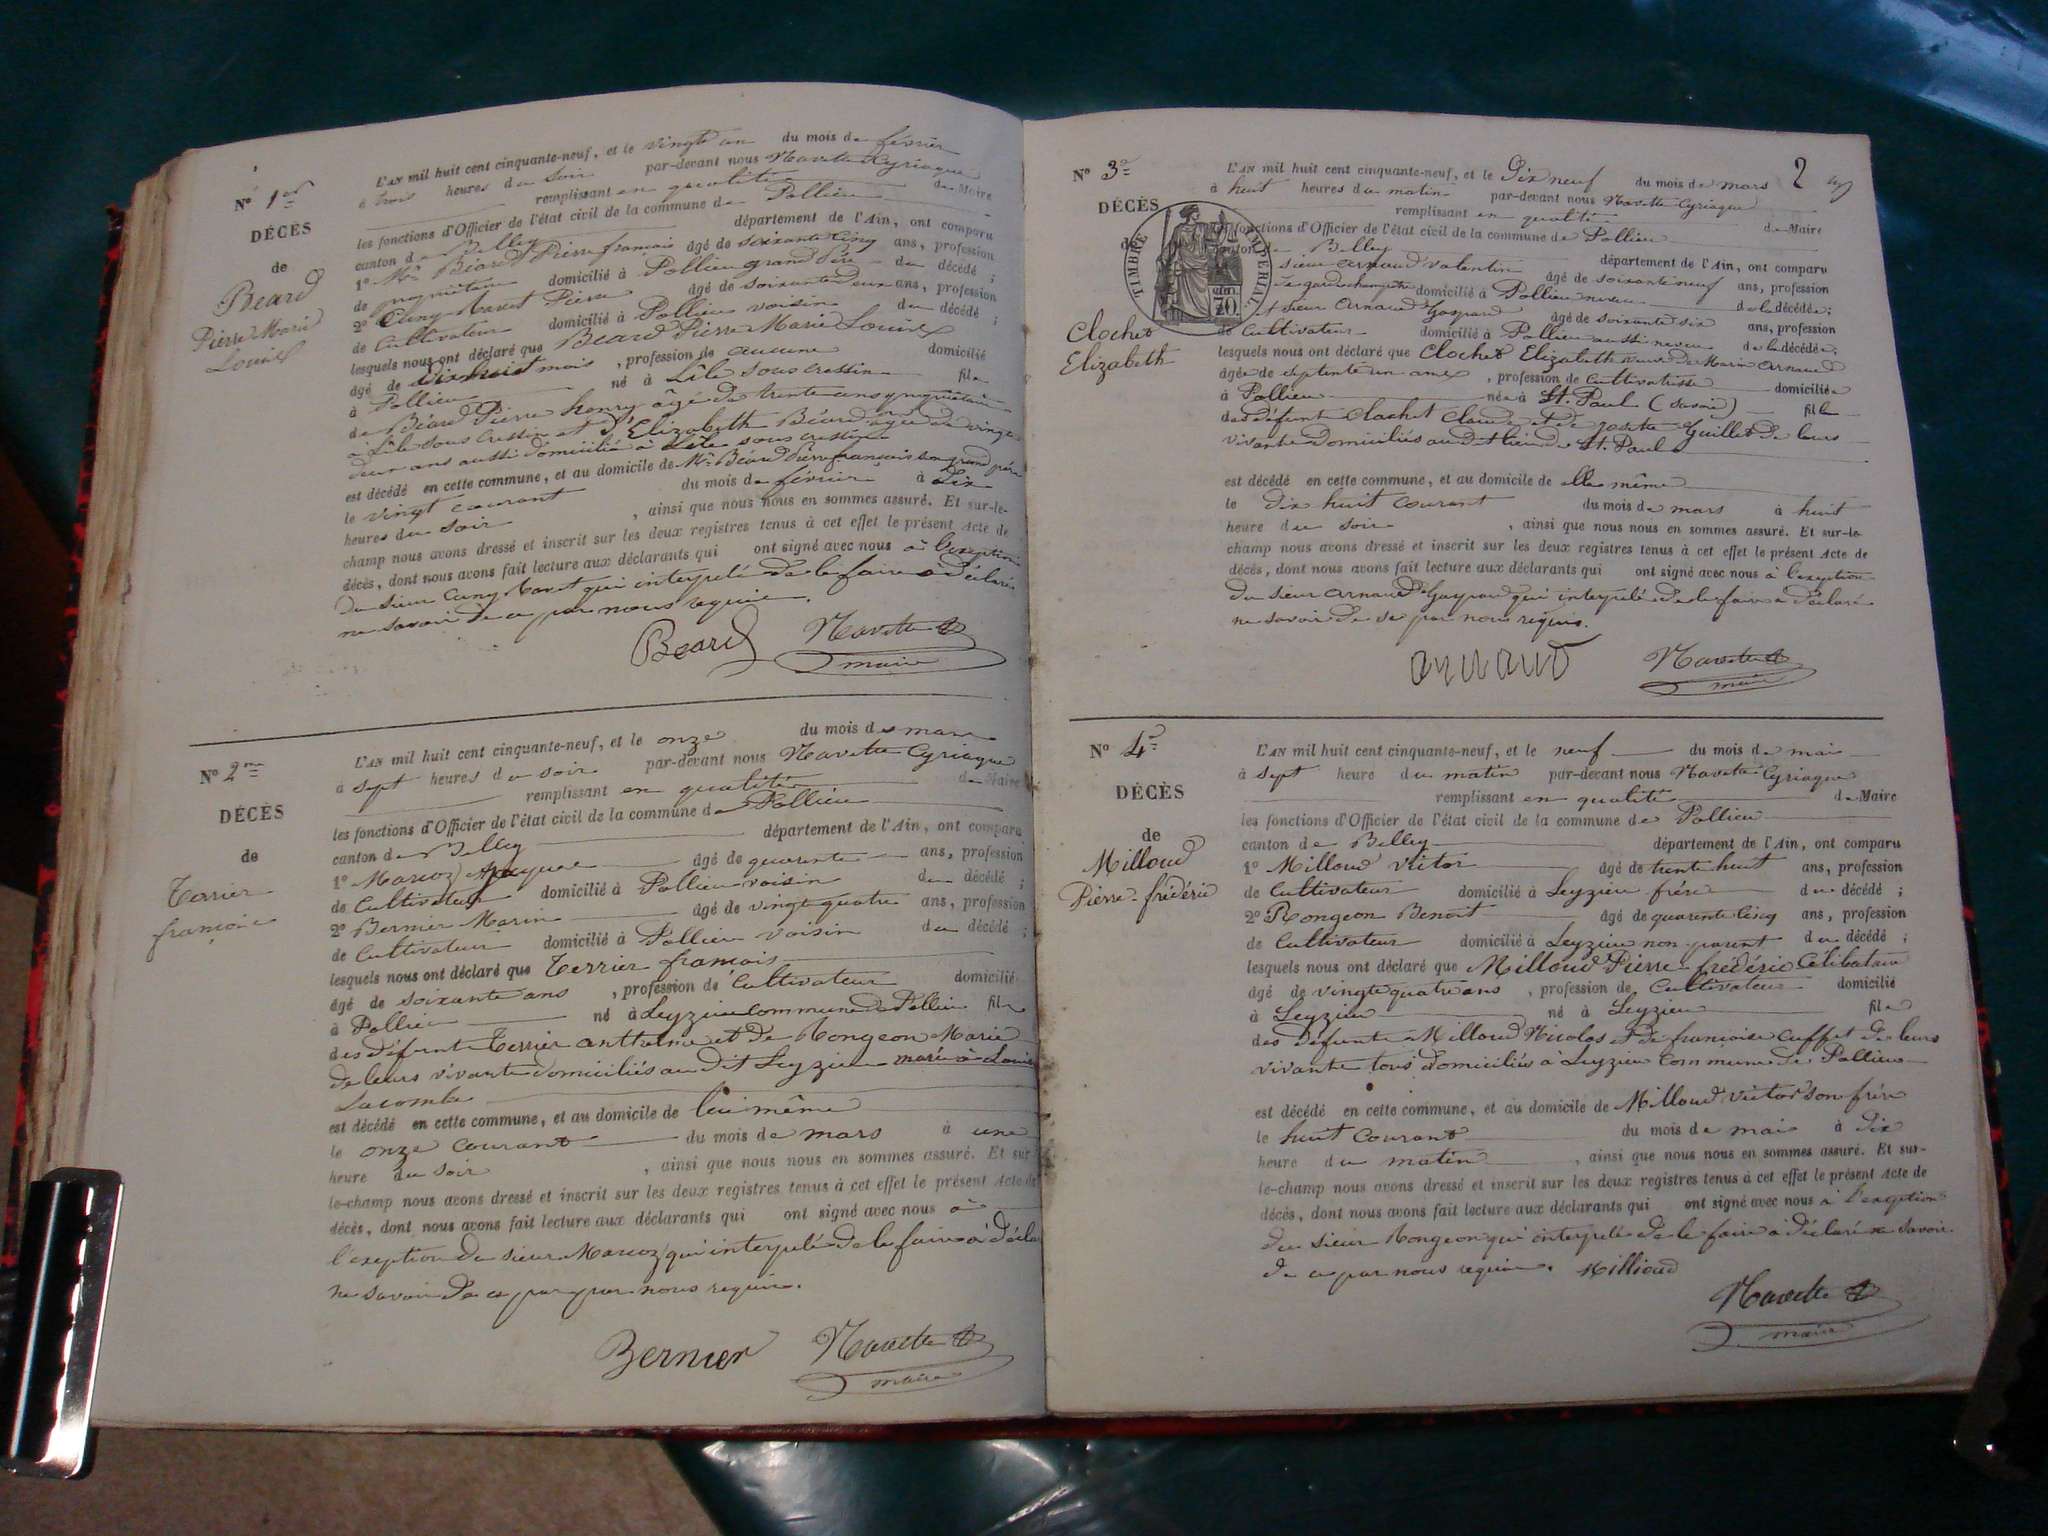 N° 1er
DÉCÈS
de
Béard
Pierre Marie
Louis
L'AN mil huit cent cinquante-neuf, et le vingt un du mois de février
à trois heures du soir par-devant nous Navette Cyriaque
remplissant en qualité de Maire
les fonctions d'Officier de l'état civil de la commune de Pollieu
canton de Belley département de l'Ain, ont comparu
1° Mr. Béard Pierre françois âgé de soixante cinq ans, profession
de propriétaire domicilié à Pollieu grand père du décédé ;
2° Cuny Pierre âgé de soixante deux ans, profession
de Cultivateur domicilié à Pollieu voisin du décédé ;
lesquels nous ont déclaré que Béard Pierre Marie Louis
âgé de dix huit mois , profession de aucune domicilié
à Pollieu né à L'ile sous cressin fils
de Béard Pierre henry âgé de trente ans propriétaire
à L'ile sous cressin et d'Elizabeth Béard agée de vingt
deux ans aussi domicilié à L'ile sous cressin
est décédé en cette commune, et au domicile de Mr. Béard Pierre françois son grand père
le vingt courant du mois de février à dix
heures du soir , ainsi que nous nous en sommes assuré. Et sur-le-
champ nous avons dressé et inscrit sur les deux registres tenus à cet effet le présent Acte de
décès, dont nous avons fait lecture aux déclarants qui ont signé avec nous à l'exeption
du sieur Cuny qui interpelé de le faire a déclaré
ne savoir de ce par nous requis.
Beard Navette
maire
N° 2me
DÉCÈS
de
Terrier
françois
L'AN mil huit cent cinquante-neuf, et le onze du mois de mars
à sept heures du soir par-devant nous Navette Cyriaque
remplissant en qualité de Maire
les fonctions d'Officier de l'état civil de la commune de Pollieu
canton de Belley département de l'Ain, ont comparu
1° Marcoz âgé de quarente ans, profession
de Cultivateur domicilié à Pollieu voisin du décédé ;
2° Bernier Marin âgé de vingt quatre ans, profession
de Cultivateur domicilié à Pollieu voisin du décédé ;
lesquels nous ont déclaré que Terrier françois
âgé de soixante ans , profession de Cultivateur domicilié
à Pollieu né à Leyzieu commune de Pollieu fils
des défunts Terrier anthelme et de Rongeon Marie
de leurs vivants domiciliés au dit Leyzieu marié à Louise
Lacombe
est décédé en cette commune, et au domicile de lui même
le onze courant du mois de mars à une
heure du soir , ainsi que nous nous en sommes assuré. Et sur
le-champ nous avons dressé et inscrit sur les deux registres tenus à cet effet le présent Acte de
décès, dont nous avons fait lecture aux déclarants qui ont signé avec nous à
l'exeption du sieur Marcoz qui interpelé de le faire à déclaré
ne savoir de ce par nous requis.
Bernier Navette
maire
2
N° 3e
DÉCÈS
de
Clochet
Elizabeth
TIMBRE IMPERIAL
70
L'AN mil huit cent cinquante-neuf, et le Dix neuf du mois de mars
à huit heures du matin par-devant nous Navette Cyriaque
remplissant en qualité de Maire
fonctions d'Officier de l'état civil de la commune de Pollieu
Belley département de l'Ain, ont comparu
sieur arnaud Valentin âgé de soixante neuf ans, profession
domicilié à Pollieu neveu de la décédée ;
sieur Arnaud Gaspard âgé de soixante six ans, profession
de Cultivateur domicilié à Pollieu aussi neveu de la décédée ;
lesquels nous ont déclaré que Clochet Elizabeth veuve de Marin Arnaud
âgée de septente un ans , profession de cultivatrisse domiciliée
à Pollieu née à St. Paul (savoie) fille
des défunt Clochet Claude et de josette Guillet de leurs
vivants domiciliés au dit lieu de St. Paul
est décédé en cette commune, et au domicile de elle même
le Dix huit courant du mois de mars à huit
heure du soir , ainsi que nous nous en sommes assuré. Et sur-le-
champ nous avons dressé et inscrit sur les deux registres tenus à cet effet le présent Acte de
décès, dont nous avons fait lecture aux déclarants qui ont signé avec nous à l'exeption
du sieur arnaud Gaspard qui interpelé de le faire a déclaré
ne savoir de ce par nous requis.
arnaud Navette
maire
N° 4e
DÉCÈS
de
Milloud
Pierre-frédéric
L'AN mil huit cent cinquante-neuf, et le neuf du mois de mai
à sept heure du matin par-devant nous Navette Cyriaque
remplissant en qualité de Maire
les fonctions d'Officier de l'état civil de la commune de Pollieu
canton de Belley département de l'Ain, ont comparu
1° Milloud Victor âgé de trente huit ans, profession
de Cultivateur domicilié à Leyzieu frére du décédé ;
2° Rongeon Benoit âgé de quarente cinq ans, profession
de Cultivateur domicilié à Leyzieu non parent du décédé ;
lesquels nous ont déclaré que Milloud Pierre frédéric Célibataire
âgé de vingt quatre ans , profession de Cultivateur domicilié
à Leyzieu né à Leyzieu fils
des défunts Milloud Nicolas et de francoise Cuffet de leurs
vivants tous domiciliés à Leyzieu Commune de Pollieu
est décédé en cette commune, et au domicile de Milloud Victor son frére
le huit courant du mois de mai à Dix
heure du matin , ainsi que nous nous en sommes assuré. Et sur-
le-champ nous avons dressé et inscrit sur les deux registres tenus à cet effet le présent Acte de
décès, dont nous avons fait lecture aux déclarants qui ont signé avec nous à l'exeption
du sieur Rongeon qui interpelé de le faire à déclaré ne savoir
de ce par nous requis. Millioud
Navette
maire